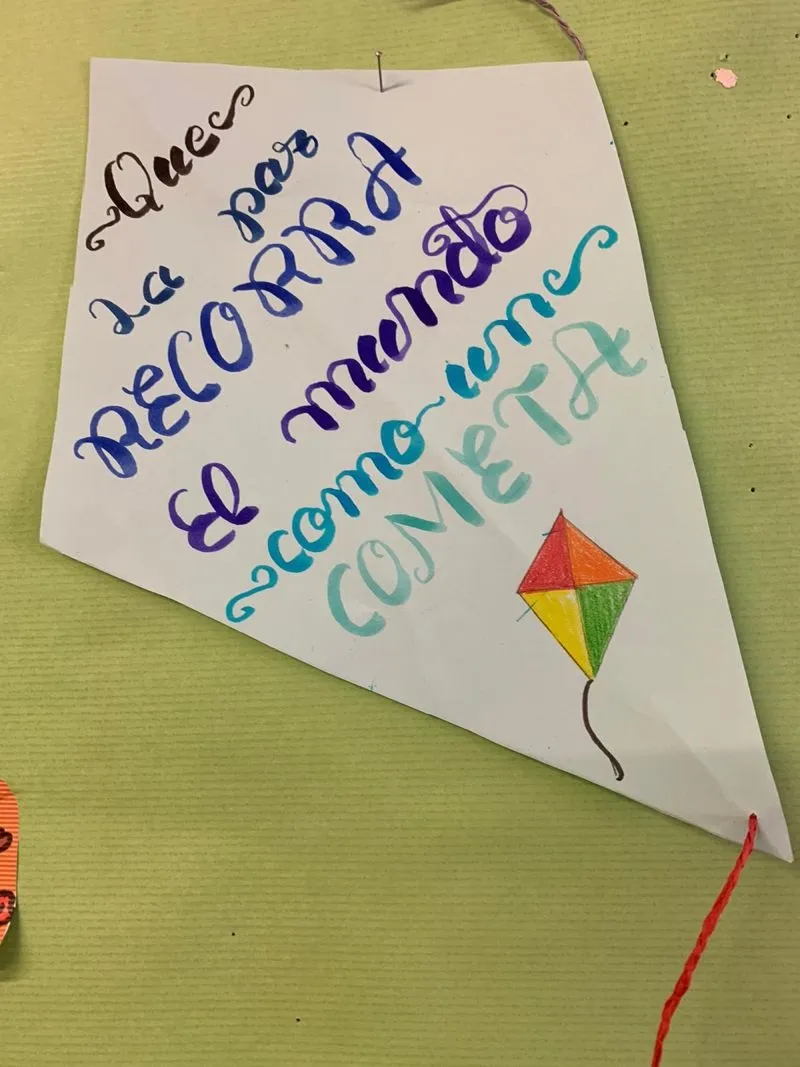 Que
la paz
RECORRA
El mundo
como un
COMETA